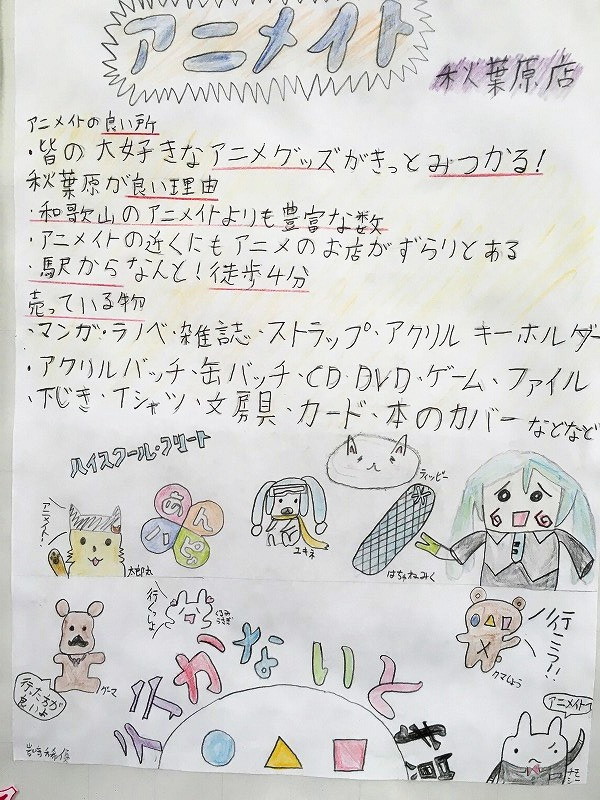 アニメイト
秋葉原店
アニメイトの良い所
・皆の大好きなアニメグッズがきっとみつかる!
秋葉原が良い理由
・和歌山のアニメイトよりも豊富な数
・アニメイトの近くにもアニメのお店がずらりとある
・駅からなんと!徒歩4分
売っている物
・マンガ・ラノベ・雑誌・ストラップ・アクリルキーホルダー
・アクリルバッチ・缶バッチ・CD・DVD・ゲーム・ファイル
・下じき・Tシャツ・文房具・カード・本のカバーなどなど
ハイスクール・フリート
アニメイト!
太郎丸
あんハピ
ユキネ
ティッピー
はちゅねみく
行くっしょ
くるみうさぎ
グーマ
行った方が良いよ
イくかないと
クマしょう
行こうア!!
アニメイト